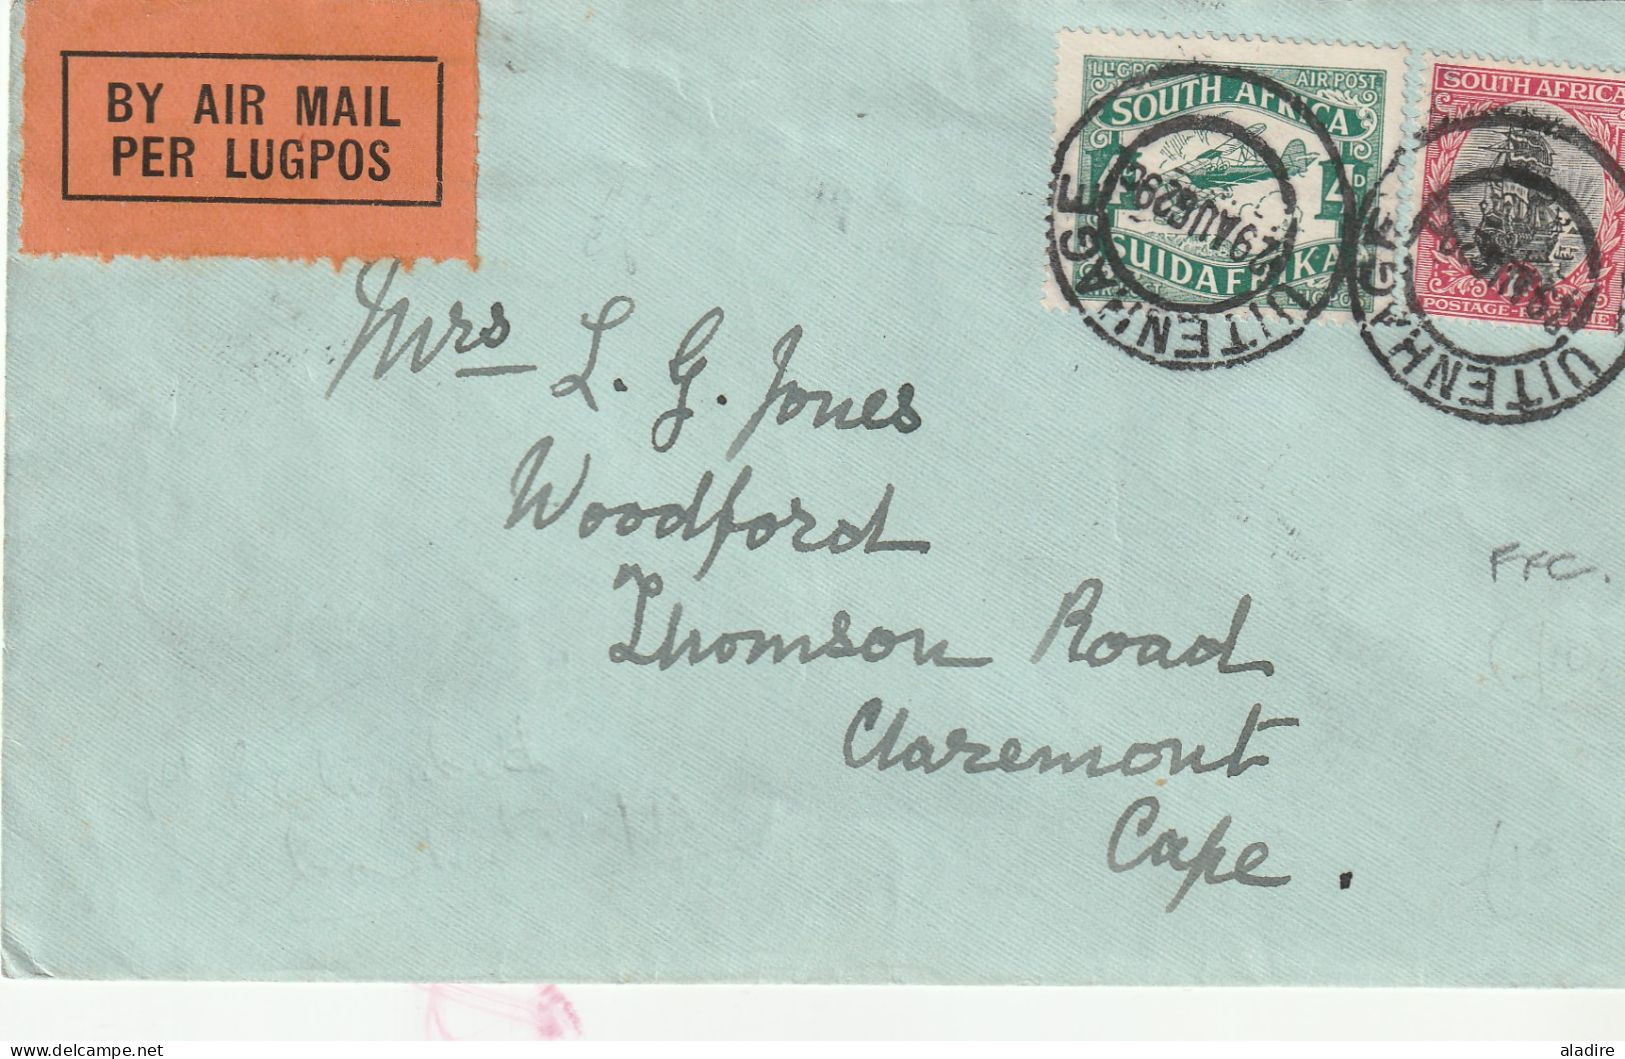 BY AIR MAIL
PER LUGPOS
AIR POST
SOUTH AFRICA
4D
SUIDAFRIKA
UITENHAGE
29 AUG 29
SOUTH AFRICA
UITENHAGE
Mrs L. G. Jones
Woodford
Thomson Road
Claremont
Cape.
FFC.
aladire